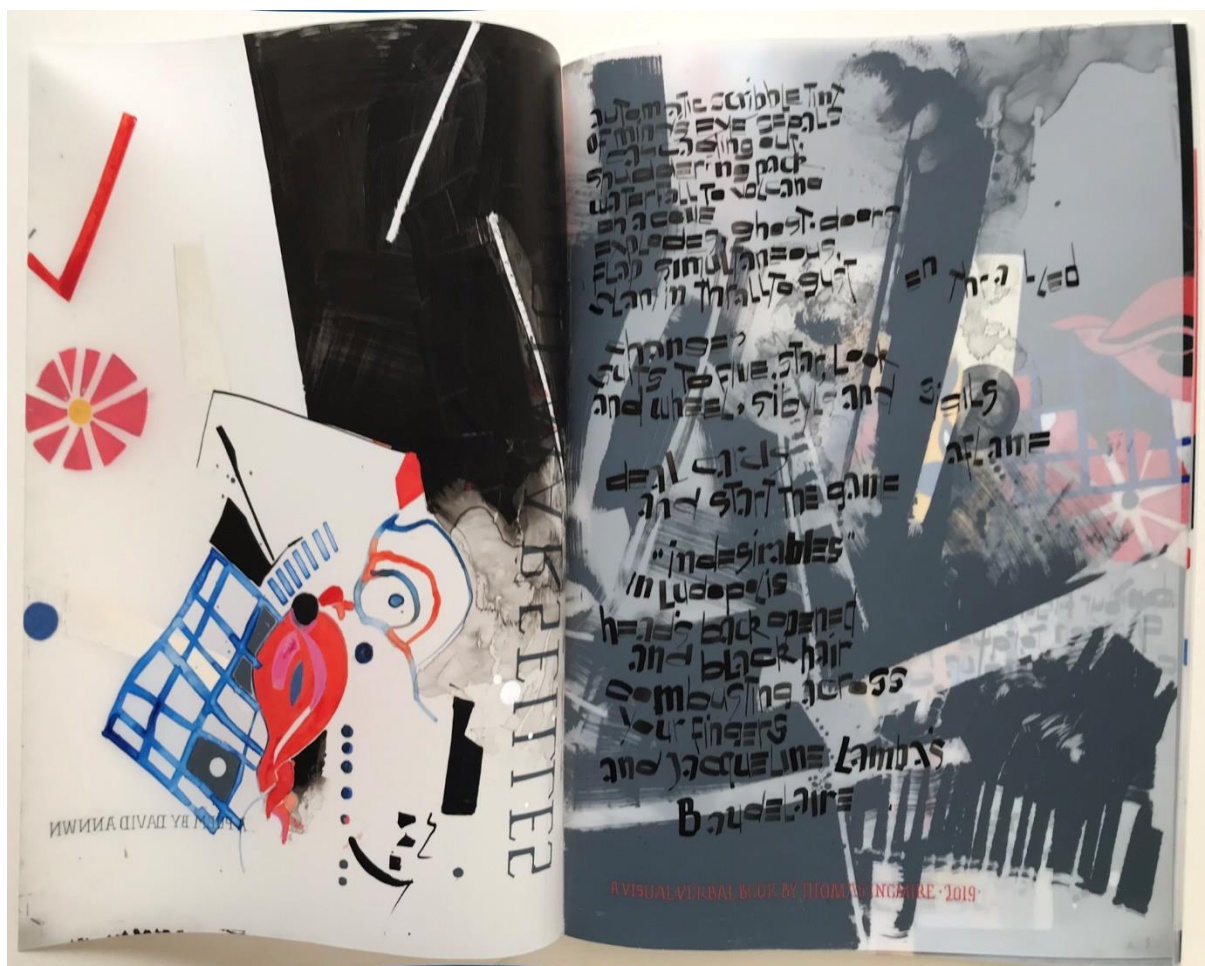 A POEM BY DAVID ANNWN
automatic scribble
of mind's eye sepals
out
pack
waterfall to volcano
on a
exploded ghost-doors
flap simultaneous,
in thrall to gust en Thralled
changes
suits to star, Lock
and wheel, sibyls and sigils
aflame
deal cards
and start the game
"indesirables"
in Ludopolis
head's back opened
and black hair
combusting across
your fingers
and Jacqueline Lamba's
Baudelaire.
A VISUAL VERBAL BOOK BY THOMAS INGMIRE · 2019 ·